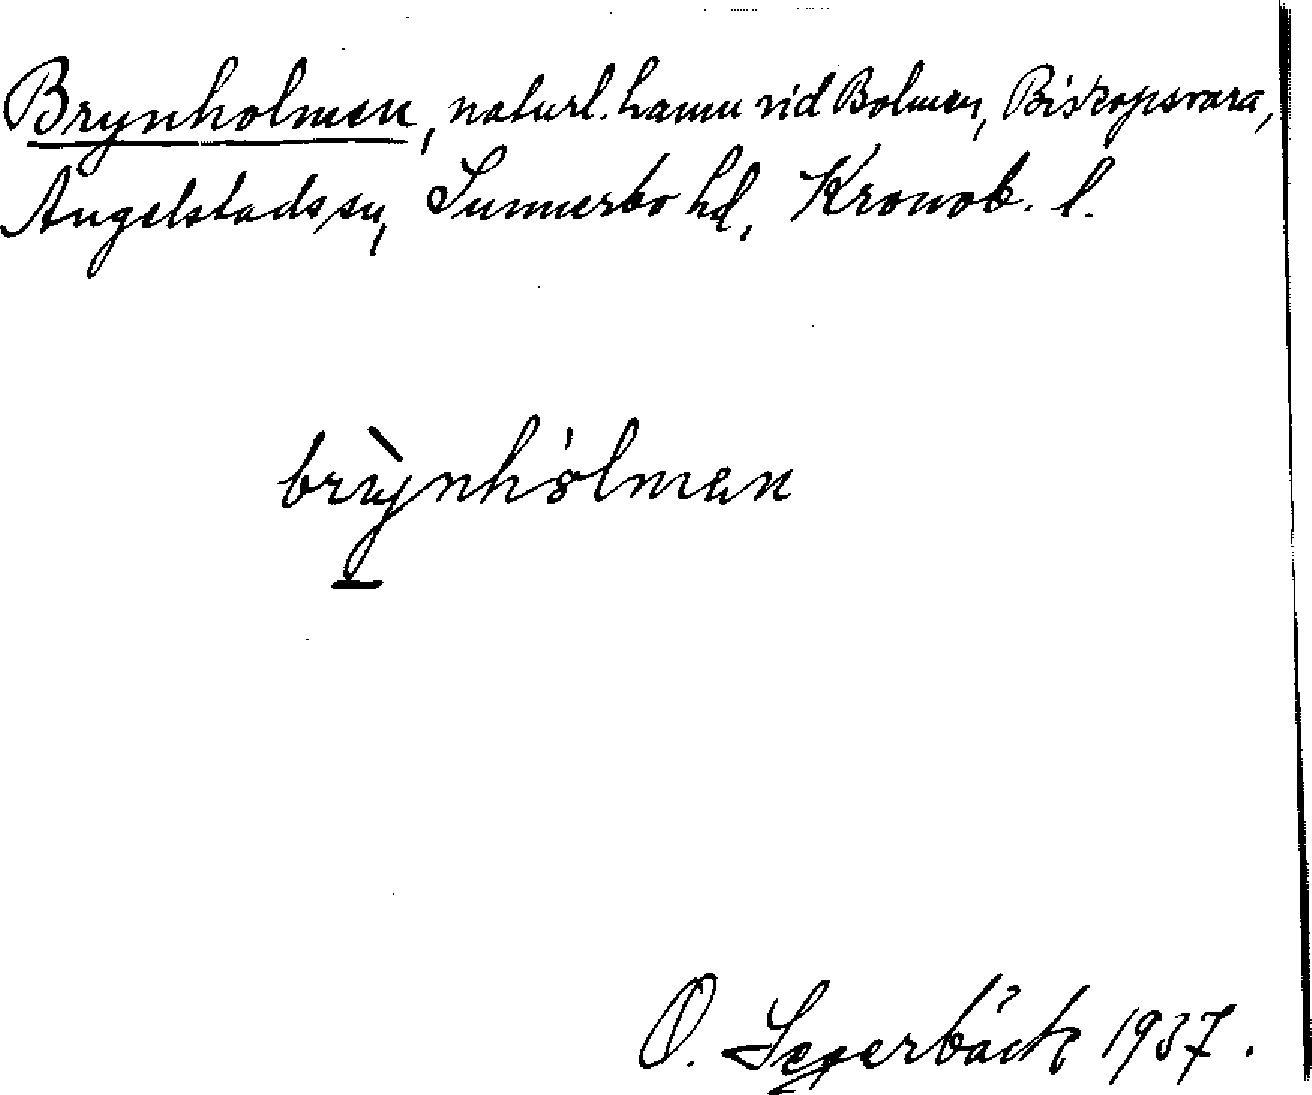 Brynholmen, naturl. hamn vid Bolmen, Biskopsvara,
Angelstads sn, Sunnerbo hd, Kronob. l.
brỳnhòlmen
O. Segerbäck 1937.